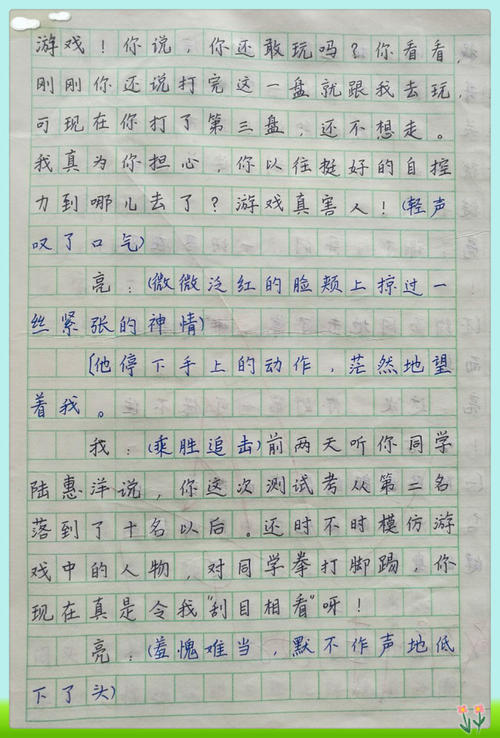 游戏！你说，你还敢玩吗？你看看，
刚刚你还说打完这一盘就跟我去玩，
可现在你打了第三盘，还不想走。
我真为你担心，你以往挺好的自控
力到哪儿去了？游戏真害人！(轻声
叹了口气)
亮：(微微泛红的脸颊上掠过一
丝紧张的神情)
[他停下手上的动作，茫然地望
着我。
我：(乘胜追击)前两天听你同学
陆惠洋说，你这次测试考从第二名
落到了十名以后。还时不时模仿游
戏中的人物，对同学拳打脚踢，你
现在真是令我“刮目相看”呀！
亮：(羞愧难当，默不作声地低
下了头)